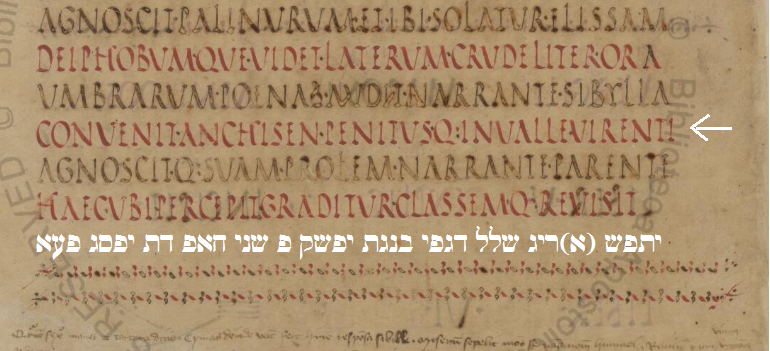 AGNOSCIT·PALINVRVM·ET·IBI·SOLATVR·ELISSAM
DEIPHOBVM·QVE·VIDET·LATERVM·CRVDELITER·ORA
VMBRARVM·POENAS·AVDIT·NARRANTE·SIBYLLA
CONVENIT·ANCHISEN·PENITVS·Q:INVALLE VIRENTI
AGNOSCIT·Q·SVAM·PROLEM·NARRANTE·PARENTE
HAEC·VBI·PERCEPIT·GRADITVR CLASSEM·Q·REVISIT
יתפש (א)ריג שלל דגפי בנגת יפשק פ שני האפ דת יפסג פעא
responsa sibille